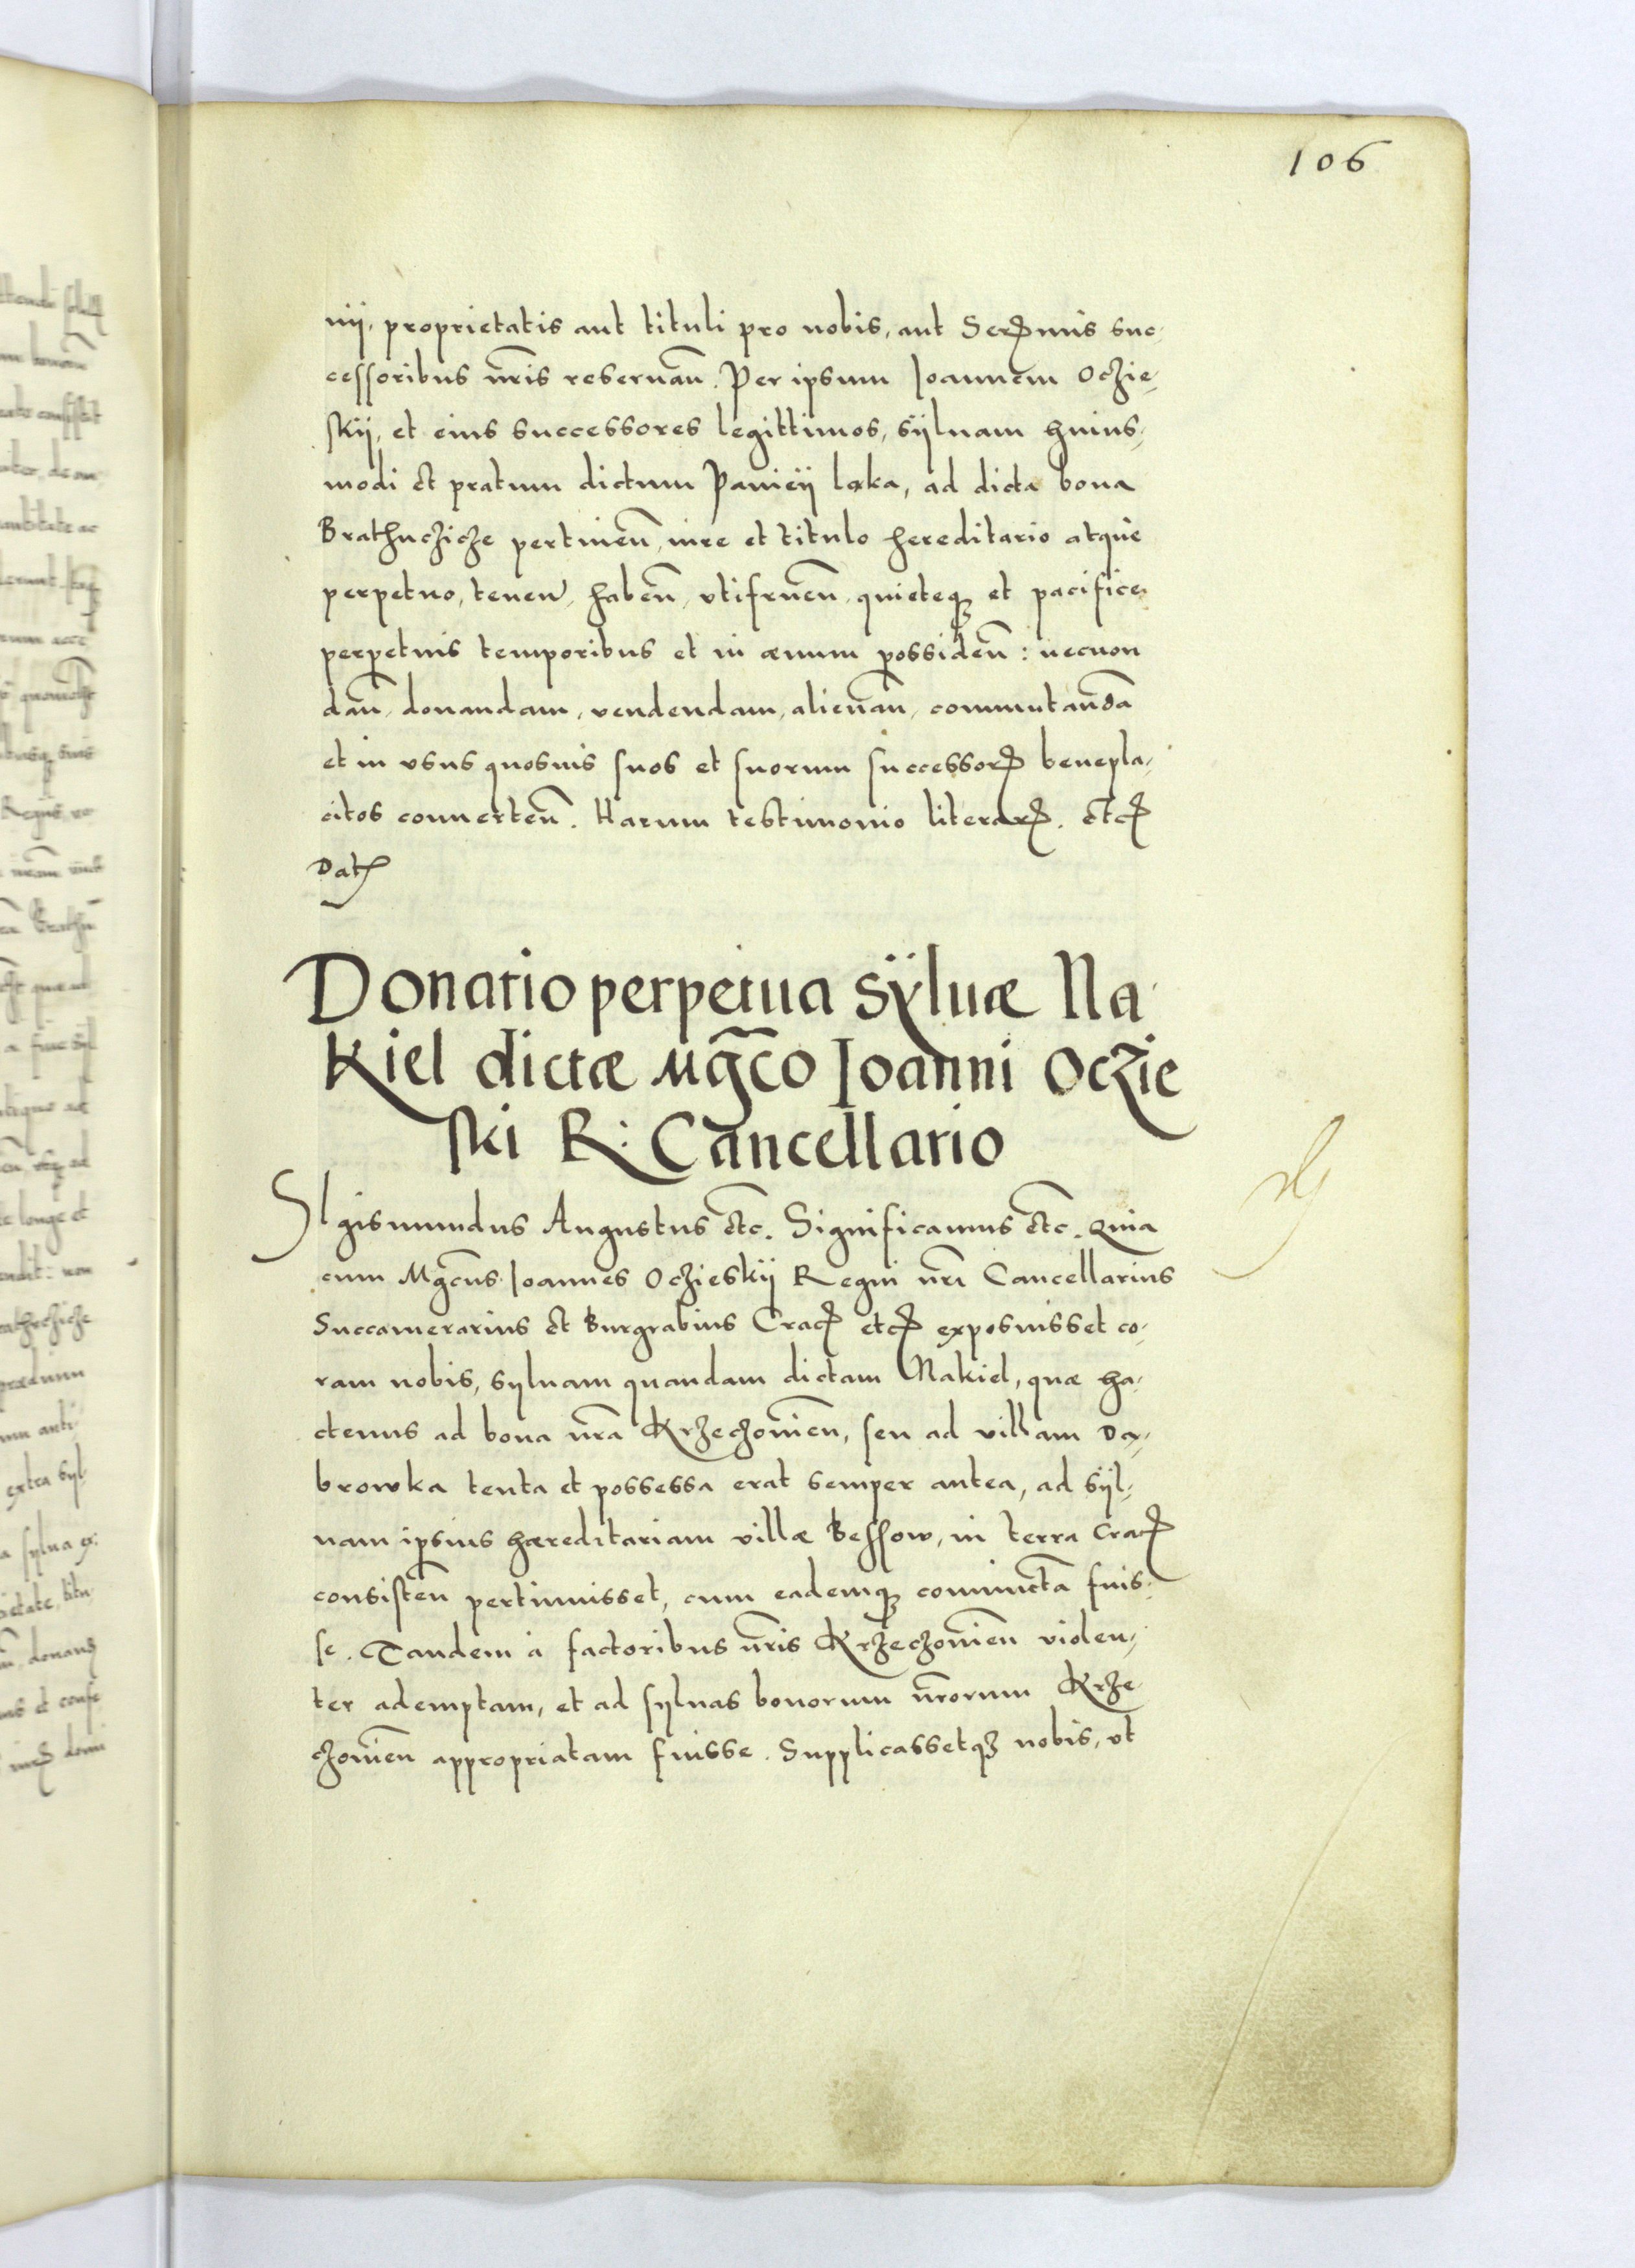 106
nij, proprietatis aut tituli pro nobis, aut Serꝫmis suc-
cessoribus nr̃is reseruan̄. Per ipsum Joannem Oczie-
skij, et eius successores legittimos, sÿluam huius-
modi et pratum dictum Paniey laka, ad dicta bona
Brathucziche pertinen̄, iure et titulo hereditario atque
perpetuo, tenen̄, haben̄, vtifruen̄, quieteqꝫ et pacifice
perpetuis temporibus et in æuum possiden̄: necnon
dan̄, donandam, vendendam, alienan̄, commutanda̅
et in vsus quosuis suos et suorum successorꝫ benepla-
citos conuerten̄. Harum testimonio literarꝫ. etcꝫ
Datꝫ
Donatio perpetua sÿluæ Na-
kiel dictæ Mg̃co Joanni Oczie
ski R: Cancellario
SIgismundus Augustus etc. Significamus etc. Quia
cum Mg̃cus Joannes Oczieskij Regni nr̃i Cancellarius
Succamerarius et Burgrabius Cracꝫ etcꝫ exposuisset co-
ram nobis, syluam quandam dictam Nakiel, quæ ha-
ctenus ad bona nr̃a Krzeczouien̄, seu ad villam Da-
browka tenta et possessa erat semper antea, ad sÿl-
uam ipsius hæreditariam villæ Bessow, in terra Cracꝫ
consisten̄ pertinuisset, cum eademqꝫ coniuncta fuis-
se. Tandem à factoribus nr̃is Krzeczouien̄ violen-
ter ademptam, et ad syluas bonorum nr̃orum Krze-
czouien̄ appropriatam fuisse. Supplicassetqꝫ nobis, vt